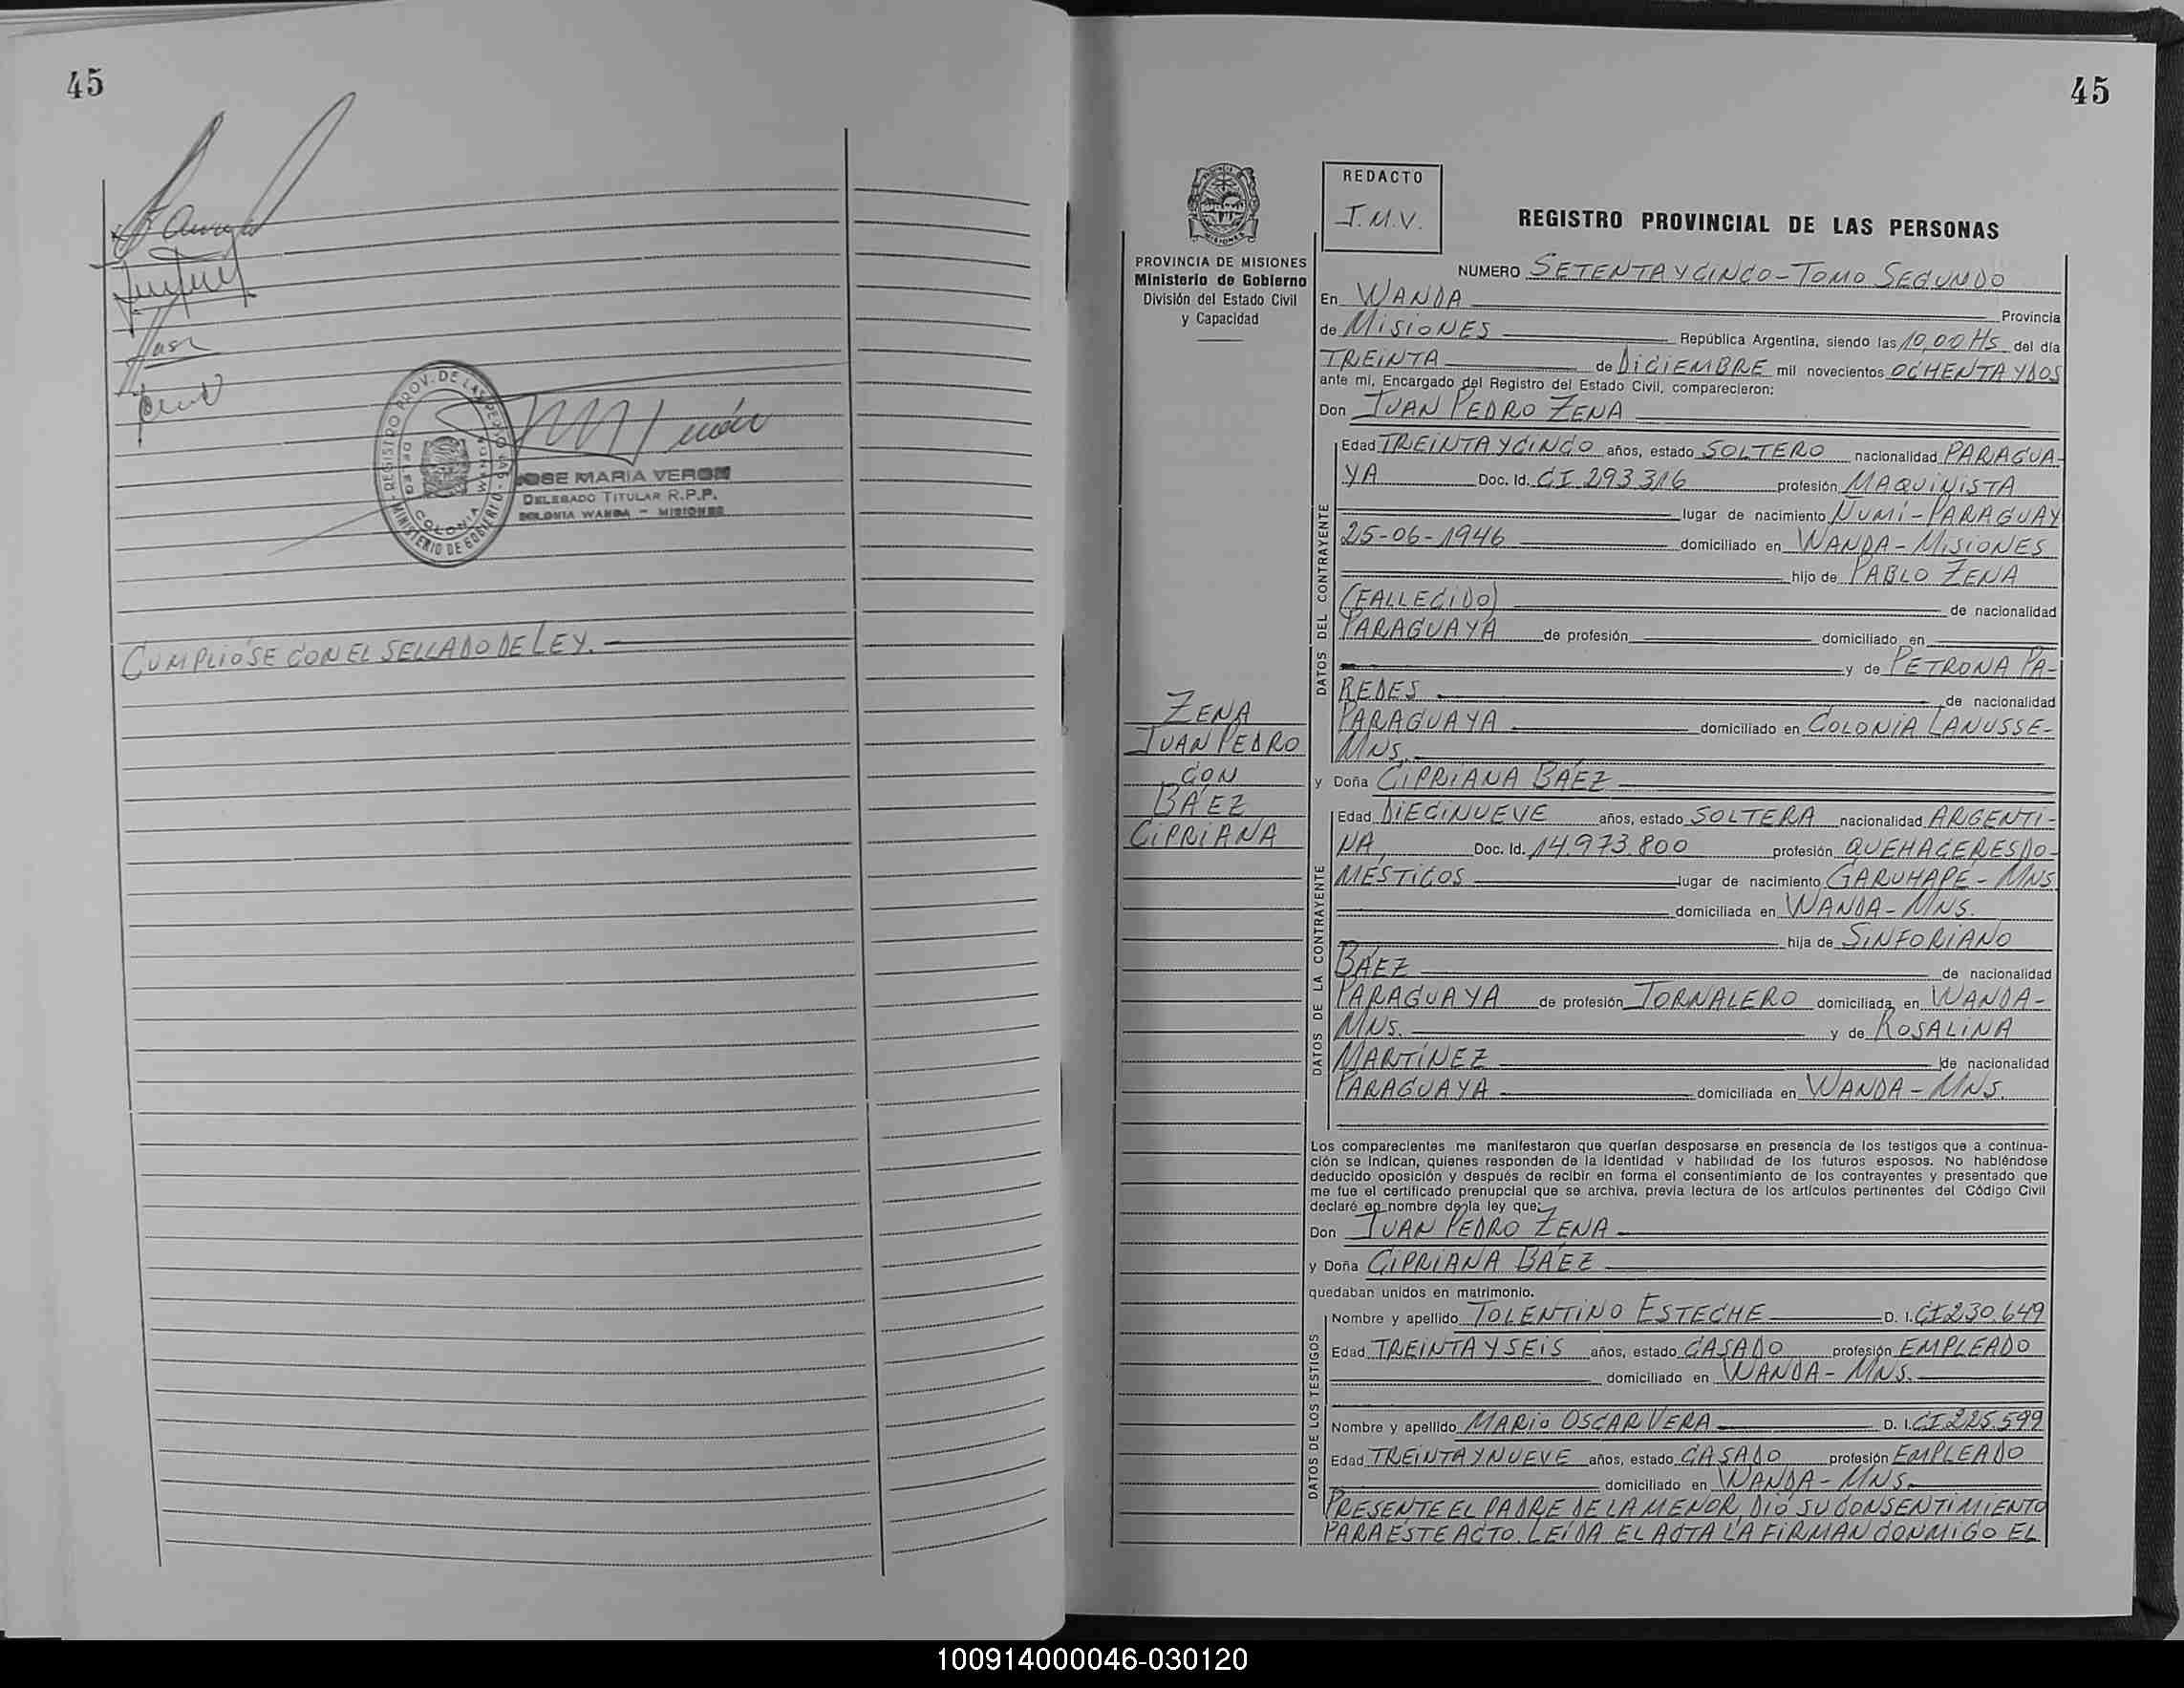 45
CUMPLIÓSE CON EL SELLADO DE LEY.
REGISTRO PROV. DE LAS PERSONAS
MINISTERIO DE GOBIERNO
COLONIA WANDA
JOSE MARIA VERON
DELEGADO TITULAR R.P.P.
COLONIA WANDA - MISIONES
45
PROVINCIA DE MISIONES
Ministerio de Gobierno
División del Estado Civil
y Capacidad
ZENA
JUAN PEDRO
CON
BÁEZ
CIPRIANA
REDACTO
J.M.V.
REGISTRO PROVINCIAL DE LAS PERSONAS
NUMERO SETENTA Y CINCO-TOMO SEGUNDO
En WANDA Provincia
de MISIONES República Argentina, siendo las 10,00 Hs del día
TREINTA de DICIEMBRE mil novecientos OCHENTA Y DOS
ante mí, Encargado del Registro del Estado Civil, comparecieron:
Don JUAN PEDRO ZENA
DATOS DEL CONTRAYENTE
Edad TREINTA Y CINCO años, estado SOLTERO nacionalidad PARAGUA-
YA Doc. Id. CI 293316 profesión MAQUINISTA
lugar de nacimiento ÑUMÍ-PARAGUAY
25-06-1946 domiciliado en WANDA-MISIONES
hijo de PABLO ZENA
(FALLECIDO) de nacionalidad
PARAGUAYA de profesión domiciliado en
y de PETRONA PA-
REDES de nacionalidad
PARAGUAYA domiciliado en COLONIA LANUSSE-
MNS.
y Doña CIPRIANA BÁEZ
DATOS DE LA CONTRAYENTE
Edad DIECINUEVE años, estado SOLTERA nacionalidad ARGENTI-
NA, Doc. Id. 14.973.800 profesión QUEHACERES DO-
MÉSTICOS lugar de nacimiento GARUHAPE-MNS
domiciliada en WANDA-MNS.
hija de SINFORIANO
BÁEZ de nacionalidad
PARAGUAYA de profesión JORNALERO domiciliada en WANDA-
MNS. y de ROSALINA
MARTÍNEZ de nacionalidad
PARAGUAYA domiciliada en WANDA-MNS.
Los comparecientes me manifestaron que querían desposarse en presencia de los testigos que a continua-
ción se indican, quienes responden de la identidad y habilidad de los futuros esposos. No habiéndose
deducido oposición y después de recibir en forma el consentimiento de los contrayentes y presentado que
me fue el certificado prenupcial que se archiva, previa lectura de los artículos pertinentes del Código Civil
declaré en nombre de la ley que:
Don JUAN PEDRO ZENA
y Doña CIPRIANA BÁEZ
quedaban unidos en matrimonio.
DATOS DE LOS TESTIGOS
Nombre y apellido TOLENTINO ESTECHE D. I. CI 230.649
Edad TREINTA Y SEIS años, estado CASADO profesión EMPLEADO
domiciliado en WANDA-MNS.
Nombre y apellido MARIO OSCAR VERA D. I. CI 225.599
Edad TREINTA Y NUEVE años, estado CASADO profesión EMPLEADO
domiciliado en WANDA-MNS.
PRESENTE EL PADRE DE LA MENOR, DIÓ SU CONSENTIMIENTO
PARA ESTE ACTO. LEÍDA EL ACTA LA FIRMAN CONMIGO EL
100914000046-030120